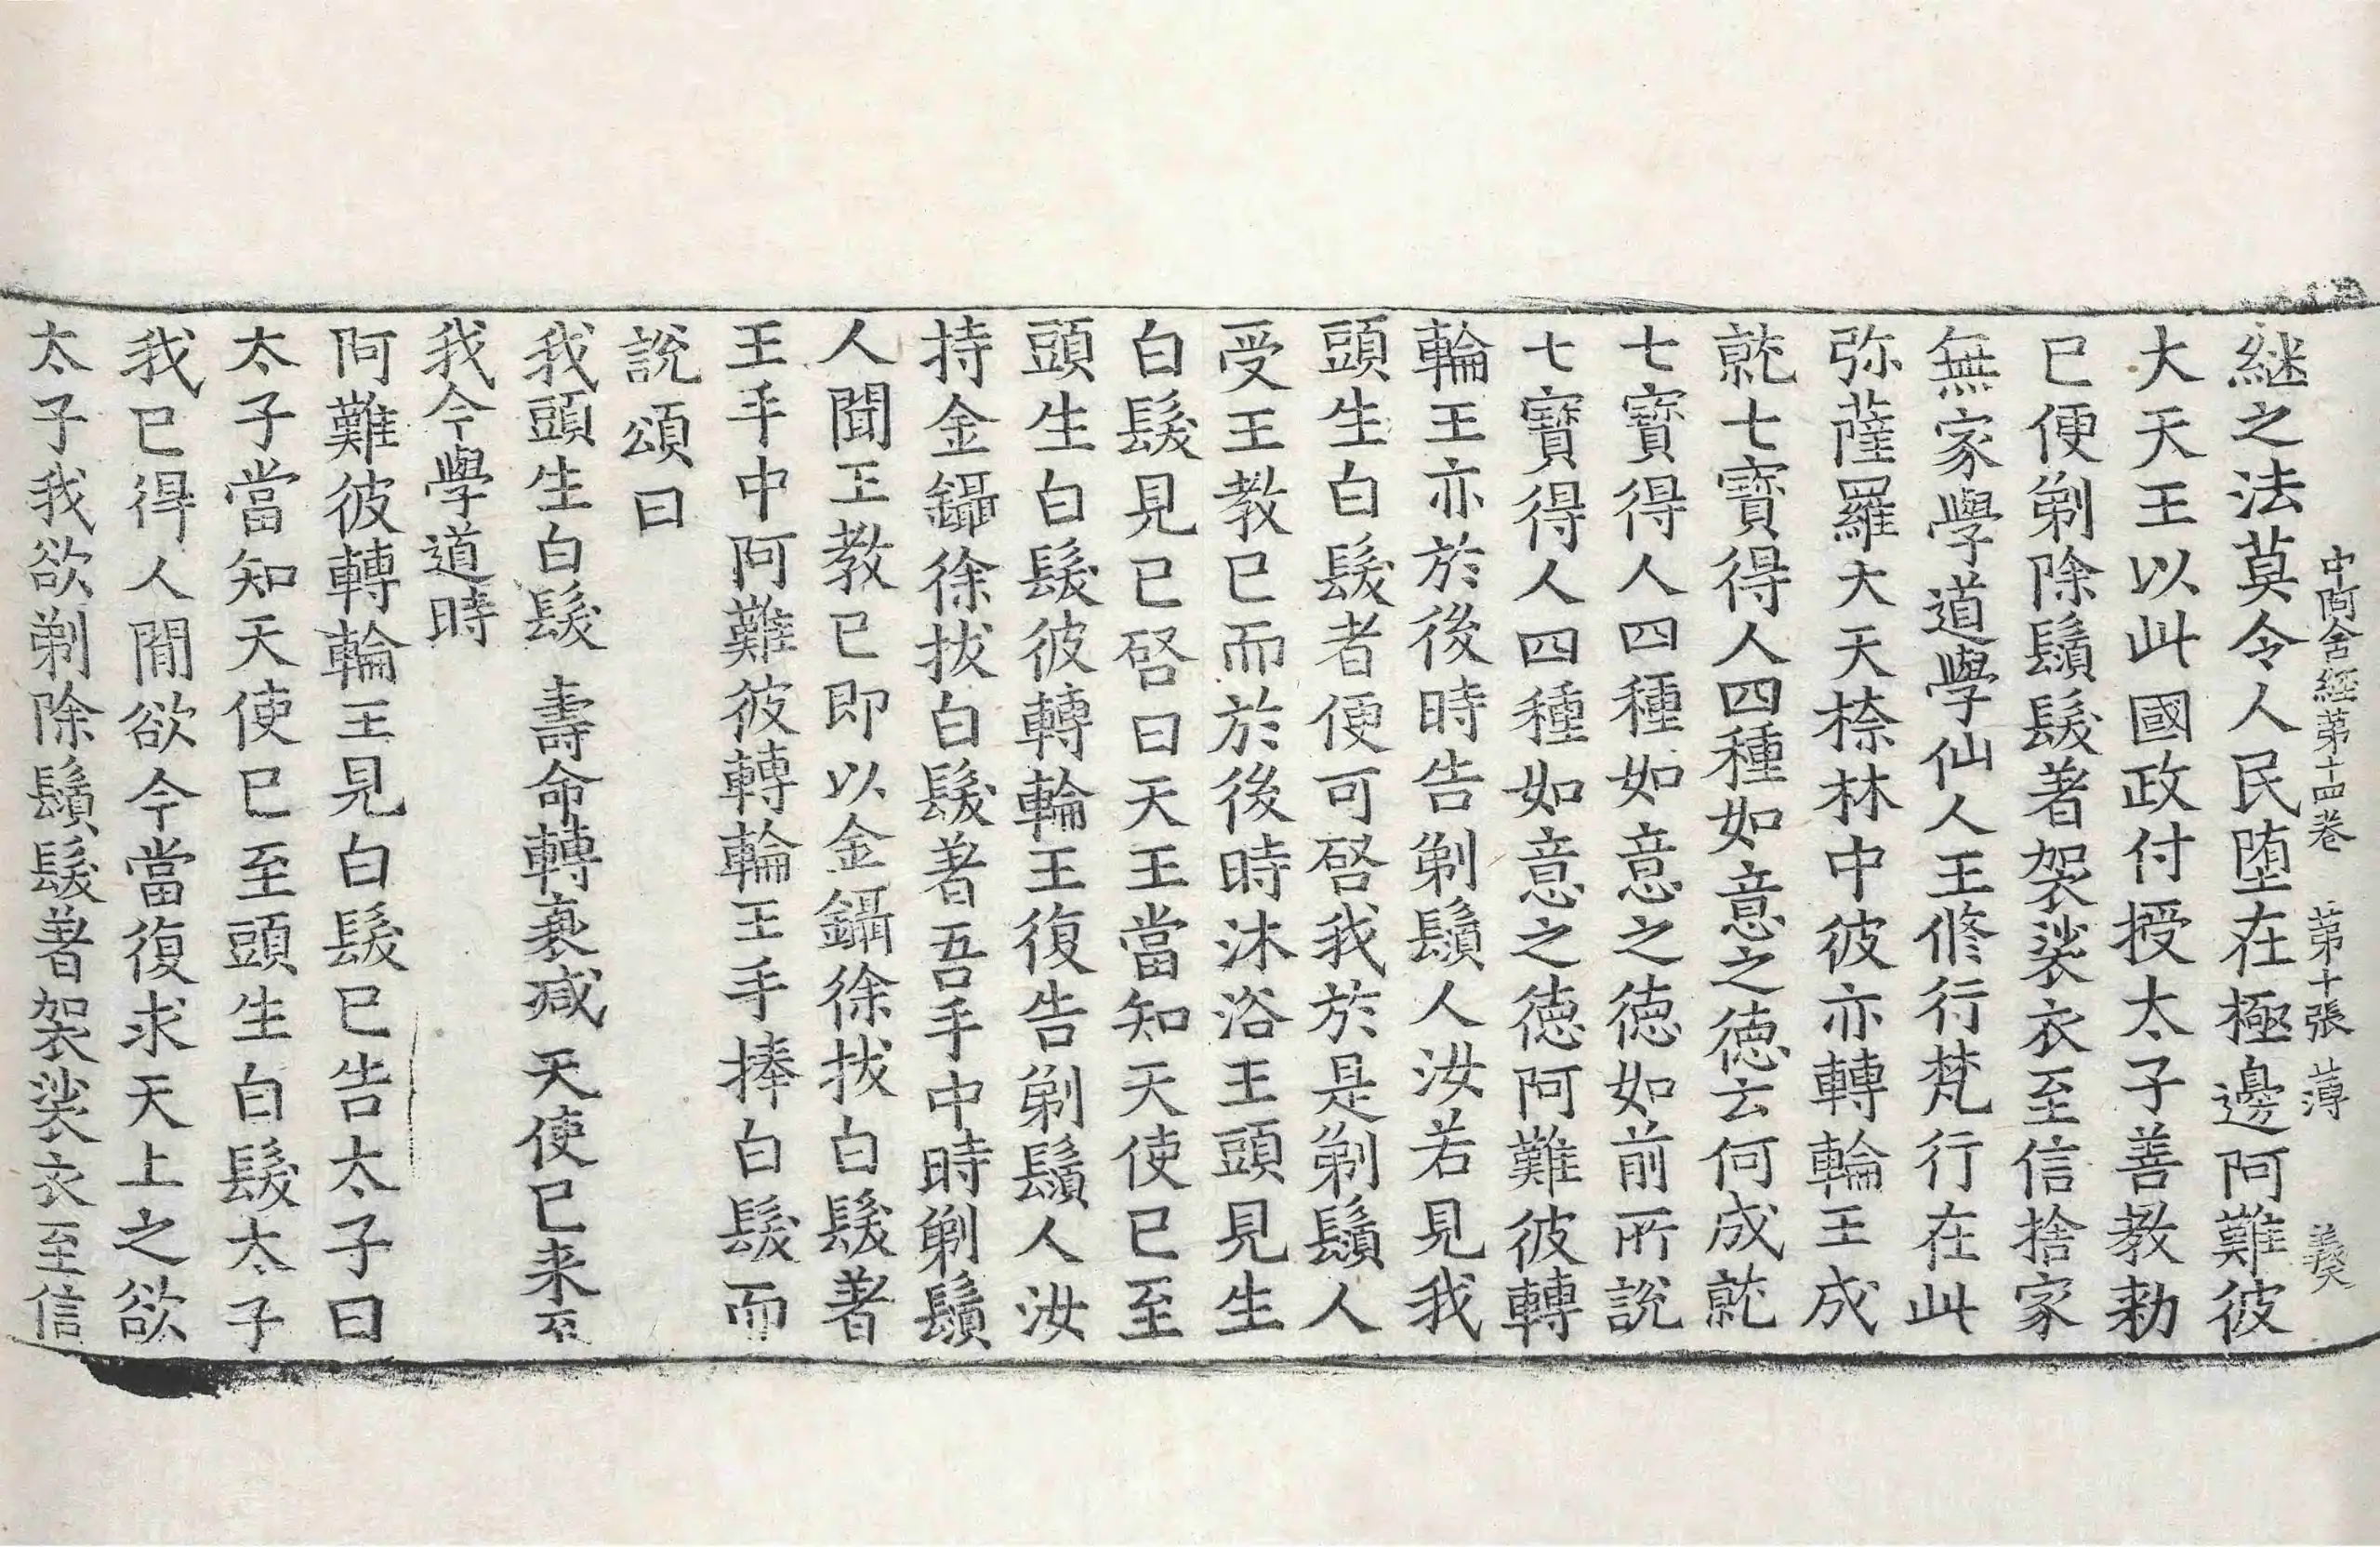 中阿含經第十四卷 第十張 薄 羛
継之法莫令人民堕在極邊阿難彼
大天王以此國政付授太子善教勑
已便剃除鬚髮著袈裟衣至信捨家
無家學道學仙人王修行梵行在此
弥薩羅大天㮈林中彼亦轉輪王成
就七寶得人四種如意之德云何成就
七寶得人四種如意之徳如前所說
七寶得人四種如意之徳阿難彼轉
輪王亦於後時告剃鬚人汝若見我
頭生白髮者便可啓我於是剃鬚人
受王教已而於後時沐浴王頭見生
白髮見已啓曰天王當知天使已至
頭生白髮彼轉輪王復告剃鬚人汝
持金鑷徐拔白髮著吾手中時剃鬚
人聞王教已即以金鑷徐拔白髮著
王手中阿難彼轉輪王手捧白髮而
說頌曰
我頭生白髮 壽命轉衰減 天使已来至
我今學道時
阿難彼轉輪王見白髮已告太子曰
太子當知天使已至頭生白髮太子
我已得人間欲今當復求天上之欲
太子我欲剃除鬚髮著袈裟衣至信